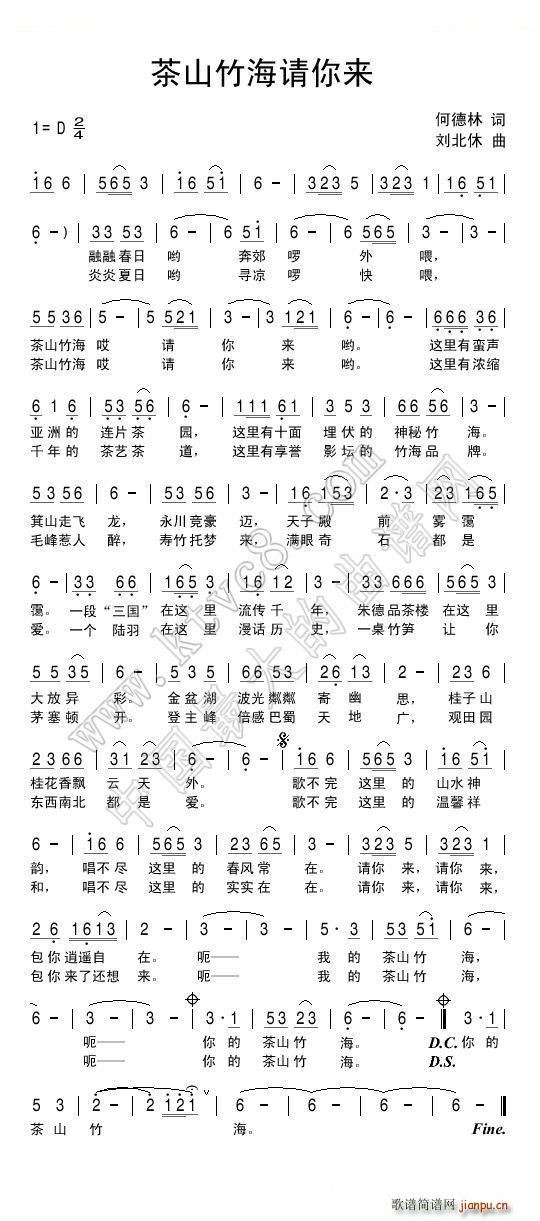 茶山竹海请你来
1= D 2/4
何德林 词
刘北休 曲
1 6 6 | 5 6 5 3 | 1 6 5 1 | 6 - | 3 2 3 5 | 3 2 3 1 | 1 6 5 1 |
6 - ) | 3 3 5 3 | 6 - | 6 5 1 | 6 - | 6 5 6 5 | 3 - | 3 - |
融融春日 哟 奔郊 啰 外 喂,
炎炎夏日 哟 寻凉 啰 快 喂,
5 5 3 6 | 5 - | 5 5 2 1 | 3 - | 3 1 2 1 | 6 - | 6 - | 6 6 6 3 6 |
茶山竹海 哎 请 你 来 哟。 这里有蛮声
茶山竹海 哎 请 你 来 哟。 这里有浓缩
6 1 6 | 5 3 5 6 | 6 - | 1 1 1 6 1 | 3 5 3 | 5 5 5 6 | 6 - |
亚洲的 连片茶 园, 这里有十面 埋伏的 神秘竹 海。
千年的 茶艺茶 道, 这里有享誉 影坛的 竹海品 牌。
5 3 5 6 | 6 - | 5 3 5 6 | 3 - | 1 6 1 5 3 | 2 · 3 | 2 3 1 6 5 |
箕山走飞 龙, 永川竞豪 迈, 天子殿 前 雾霭
毛峰惹人 醉, 寿竹托梦 来, 满眼奇 石 都是
6 - | 3 3 6 6 | 1 6 5 3 | 1 6 1 2 | 3 - | 3 3 6 6 6 | 5 6 5 3 |
霭。 一段“三国” 在这里 流传千 年, 朱德品茶楼 在这里
爱。 一个 陆羽 在这里 漫话历 史, 一桌竹笋 让你
5 5 3 5 | 6 - | 5 5 3 | 5 6 5 3 | 2 6 1 3 | 2 - | 2 3 6 |
大放异 彩。 金盆湖 波光粼粼 寄幽 思, 桂子山
茅塞顿 开。 登主峰 倍感巴蜀 天地 广, 观田园
2 3 6 6 | 3 1 2 3 | 6 - | 6 - | 1 6 6 | 5 6 5 3 | 1 6 5 1 |
桂花香飘 云天 外。 歌不完 这里的 山水神
东西南北 都是 爱。 歌不完 这里的 温馨祥
6 - | 1 6 6 | 5 6 5 3 | 2 3 6 5 | 3 - | 3 2 3 5 | 3 2 3 1 |
韵, 唱不尽 这里的 春风常 在。 请你 来, 请你 来,
和, 唱不尽 这里的 实实在 在。 请你 来, 请你 来,
2 6 1 6 1 3 | 2 - | 3 - | 3 - | 5 · 3 | 5 3 5 1 | 6 - |
包你 逍遥自 在。 呃—— 我的 茶山竹 海,
包你 来了还想 来。 呃—— 我的 茶山竹 海,
6 - | 3 - | 3 - | 3 · 1 | 5 3 2 3 | 6 - | 6 - || 3 · 1 |
呃—— 你的 茶山竹 海。 D.C. 你的
呃—— 你的 茶山竹 海。 D.S.
5 3 | 2 - | 2 1 2 1 | 6 - | 6 - | 6 - ||
茶山 竹 海。 Fine.
www.ktvc8.com
中国最大的曲谱网
歌谱简谱网
jianpu.cn